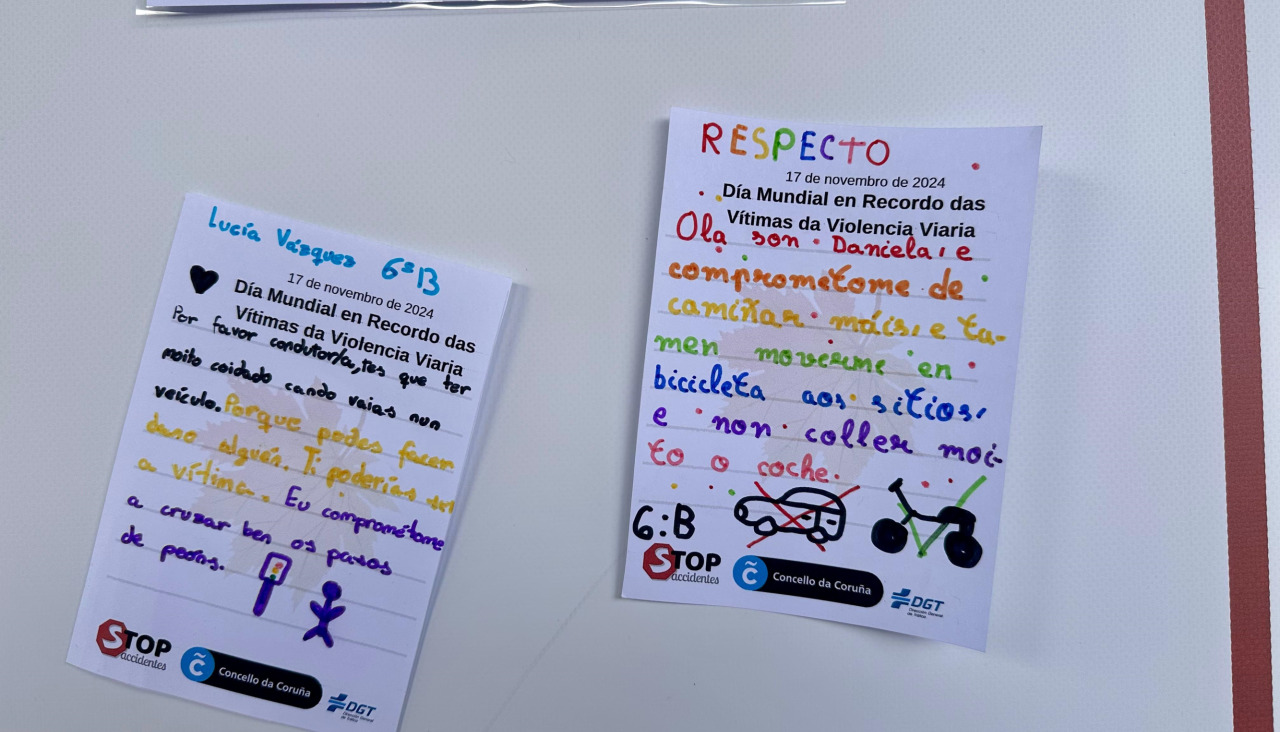 Lucía Vázquez 6ºB
17 de novembro de 2024
Día Mundial en Recordo das
Vítimas da Violencia Viaria
Por favor condutor/a, tes que ter
moito coidado cando vaias nun
veículo. Porque podes facer
dano alguén. Ti poderías ser
a vítima. Eu comprométome
a cruzar ben os pasos
de peóns.
STOP
accidentes
Concello da Coruña
DGT
Dirección General
de Tráfico
RESPECTO
17 de novembro de 2024
Día Mundial en Recordo das
Vítimas da Violencia Viaria
Ola son Daniela, e
comprometome de
camiñar máis, e ta-
men moverme en
bicicleta aos sitios,
e non coller moi-
to o coche.
6:B
STOP
accidentes
Concello da Coruña
DGT
Dirección General
de Tráfico